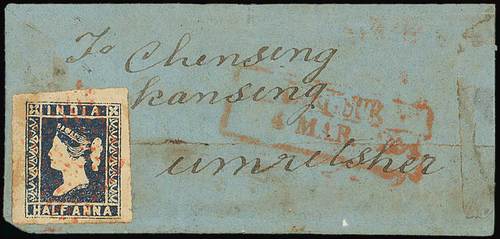 To Chensing
kansing
umritsher
MAR
INDIA
HALF ANNA